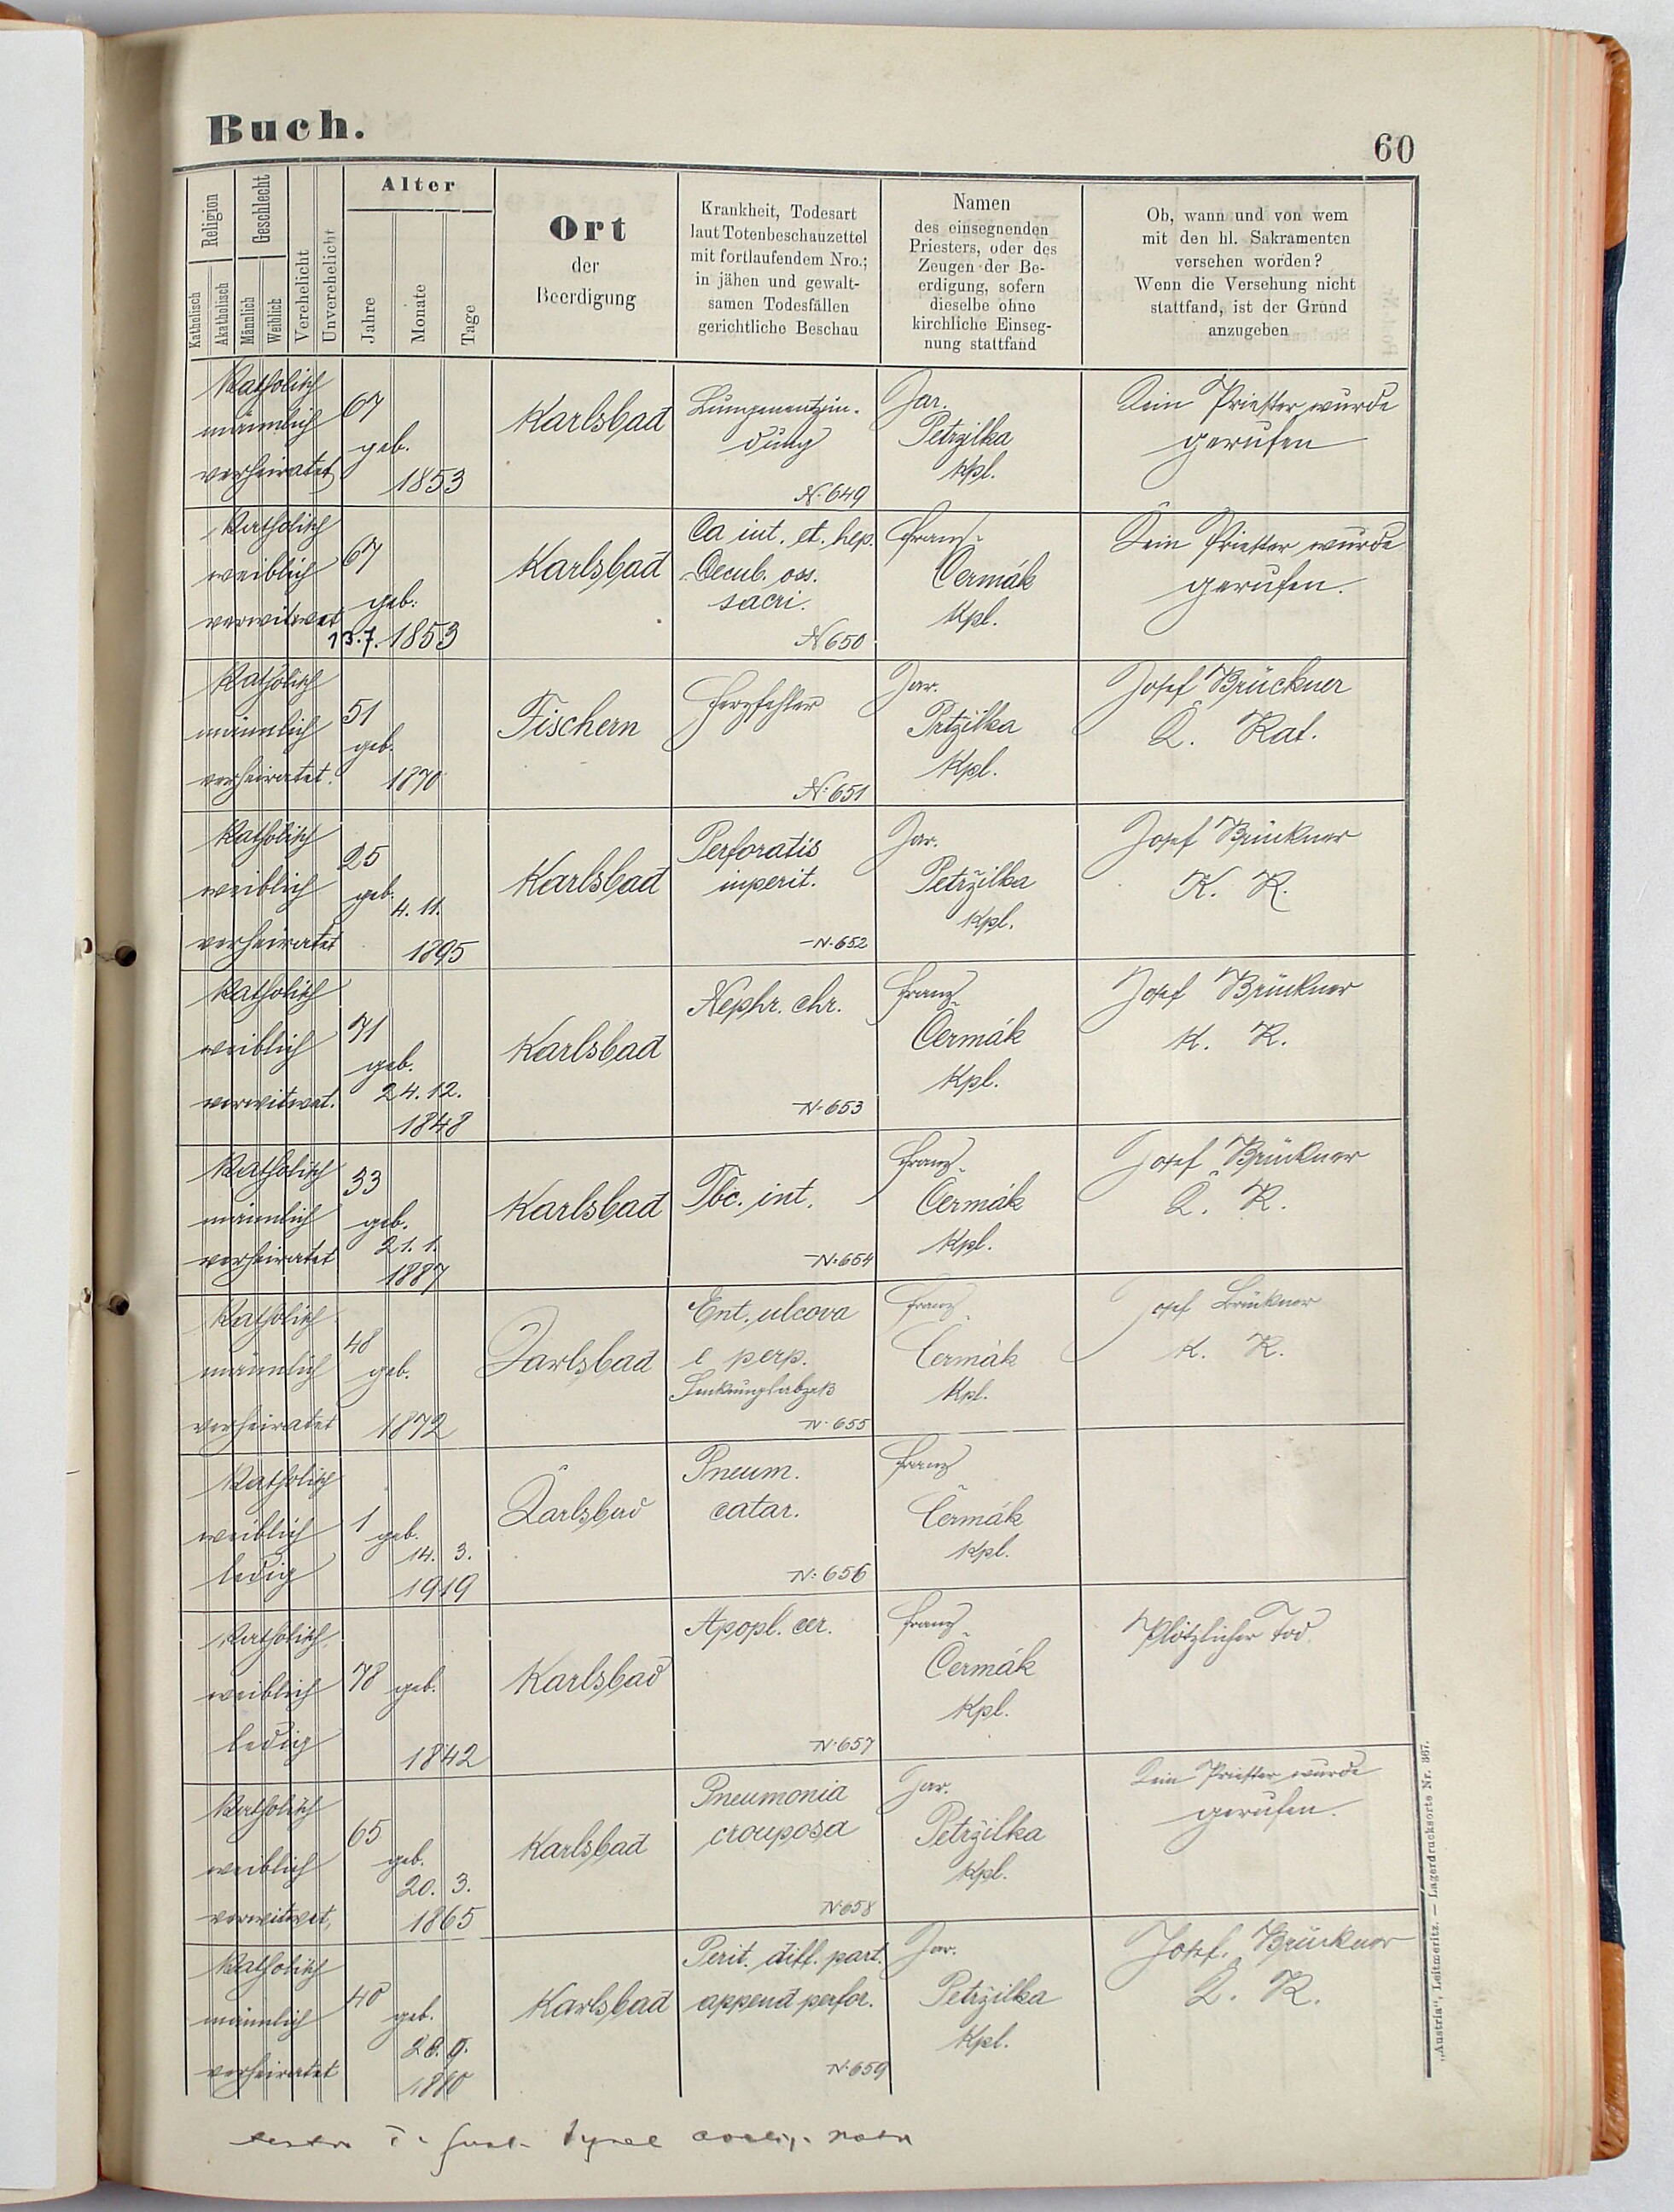 Buch.
60
Religion
Geschlecht
Katholisch
Akatholisch
Männlich
Weiblich
Verehelicht
Unverehelicht
Alter
Jahre
Monate
Tage
Ort
der
Beerdigung
Krankheit, Todesart
laut Totenbeschauzettel
mit fortlaufendem Nro.;
in jähen und gewalt-
samen Todesfällen
gerichtliche Beschau
Namen
des einsegnenden
Priesters, oder des
Zeugen der Be-
erdigung, sofern
dieselbe ohne
kirchliche Einseg-
nung stattfand
Ob, wann und von wem
mit den hl. Sakramenten
versehen worden?
Wenn die Versehung nicht
stattfand, ist der Grund
anzugeben
Katholisch
männlich
verheiratet
67
geb.
1853
Karlsbad
Lungenentzün-
dung
N. 649
Jar.
Petrzilka
Kpl.
Kein Priester wurde
gerufen
Katholisch
weiblich
verwitwet
67
geb.
13.7. 1853
Karlsbad
Ca int. et. hep.
Decub. oss.
sacri.
N 650
Franz
Čermák
Kpl.
Kein Priester wurde
gerufen.
Katholisch
männlich
verheiratet.
51
geb.
1870
Fischern
Herzfehler
N. 651
Jar.
Prtzilka
Kpl.
Josef Brückner
K. Kat.
Katholisch
weiblich
verheiratet
25
geb.
4. 11.
1895
Karlsbad
Perforatis
inperit.
N. 652
Jar.
Petržilka
Kpl.
Josef Brückner
K. K.
Katholisch
weiblich
verwitwet.
71
geb.
24. 12.
1848
Karlsbad
Nephr. chr.
N. 653
Franz
Čermák
Kpl.
Josef Brückner
K. K.
Katholisch
männlich
verheiratet
33
geb.
21. 1.
1887
Karlsbad
Tbc. int.
N. 654
Franz
Čermák
Kpl.
Josef Brückner
K. K.
Katholisch
männlich
verheiratet
48
geb.
1872
Karlsbad
Ent. ulcova
e perp.
N. 655
Franz
Čermák
Kpl.
Josef Brückner
K. K.
Katholisch
weiblich
ledig
1 geb.
14. 3.
1919
Karlsbad
Pneum.
catar.
N. 656
Franz
Čermák
Kpl.
Katholisch
weiblich
ledig
78 geb.
1842
Karlsbad
Apopl. cer.
N. 657
Franz
Čermák
Kpl.
Plötzlicher Tod.
Katholisch
weiblich
verwitwet,
65
geb.
20. 3.
1865
Karlsbad
Pneumonia
crouposa
N. 658
Jar.
Petrzilka
Kpl.
Kein Priester wurde
gerufen.
Katholisch
männlich
verheiratet
40
geb.
28. 9.
1880
Karlsbad
Perit. diff. part.
append perfor.
N. 659
Jar.
Petrzilka
Kpl.
Josef Brückner
K. K.
„Austria", Leitmeritz. — Lagerdrucksorte Nr. 367.